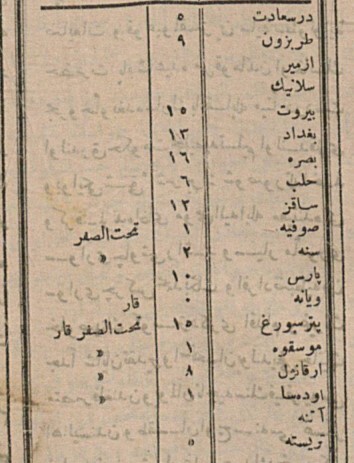 درسعادت ٥
طربزون ٩
ازمير
سلانيك
بيروت ١٥
بغداد ١٣
بصره ١٦
حلب ٦
ساقز ١٢
صوفيه ١ تحت الصفر
سنه ٢ »
پارس ١٠
ويانه ٠ قار
پترسبورغ ١٥ تحت الصفر قار
موسقوه ١ »
ارقانژل ٨ »
اودهسا ١ »
آتنه
تريسته ٥